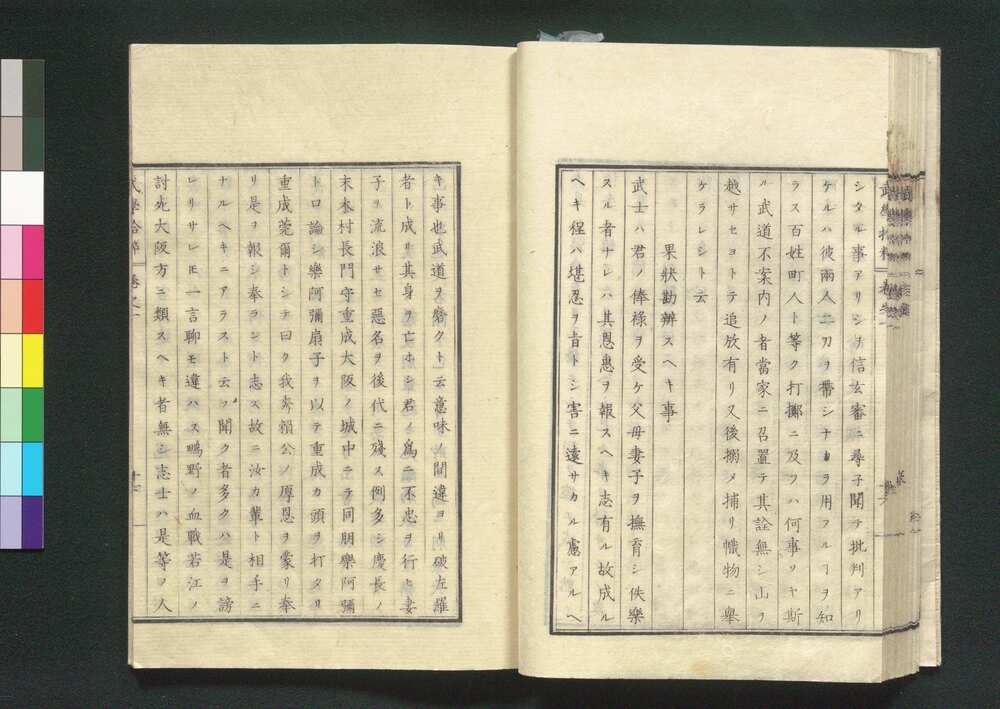 シタル事アリシヲ信玄審ニ尋子聞テ批判アリ
ケルハ彼兩人二刀ヲ帶シナカラ用フルヿヲ知
ラス百姓町人ト等ク打擲ニ及フハ何事ソヤ斯
ル武道不案内ノ者當家ニ召置テ其詮無シ山ヲ
越サセヨトテ追放有リ又後搦メ捕リ幟物ニ舉
ケラレシト云
果狀勘辨スヘキ事
武士ハ君ノ俸祿ヲ受ケ父母妻子ヲ撫育シ佚樂
スル者ナレハ其恩惠ヲ報スヘキ志有ル故成ル
ヘキ程ハ堪忍ヲ旨トシ害ニ遠サカル慮アルヘ
キ事也武道ヲ磨クト云意味ノ間違ヨリ破左羅
者ト成リ其身ヲ亡ホシ君ノ爲ニ不忠ヲ行ヒ妻
子ヲ流浪サセ惡名ヲ後代ニ殘ス例多シ慶長ノ
末木村長門守重成大阪ノ城中ニテ同朋樂阿彌
ト口論シ樂阿彌扇子ヲ以テ重成カ頭ヲ打タリ
重成莞爾トシテ曰ク我秀賴公ノ厚恩ヲ蒙リ奉
リ是ヲ報シ奉ラント志ス故ニ汝カ輩ト相手ニ
ナルヘキニアラスト云フ聞ク者多クハ是ヲ謗
レリサレ𪜈一言聊モ違ハス鴫野ノ血戰若江ノ
討死大阪方ニ類スヘキ者無シ志士ハ是等ヲ人